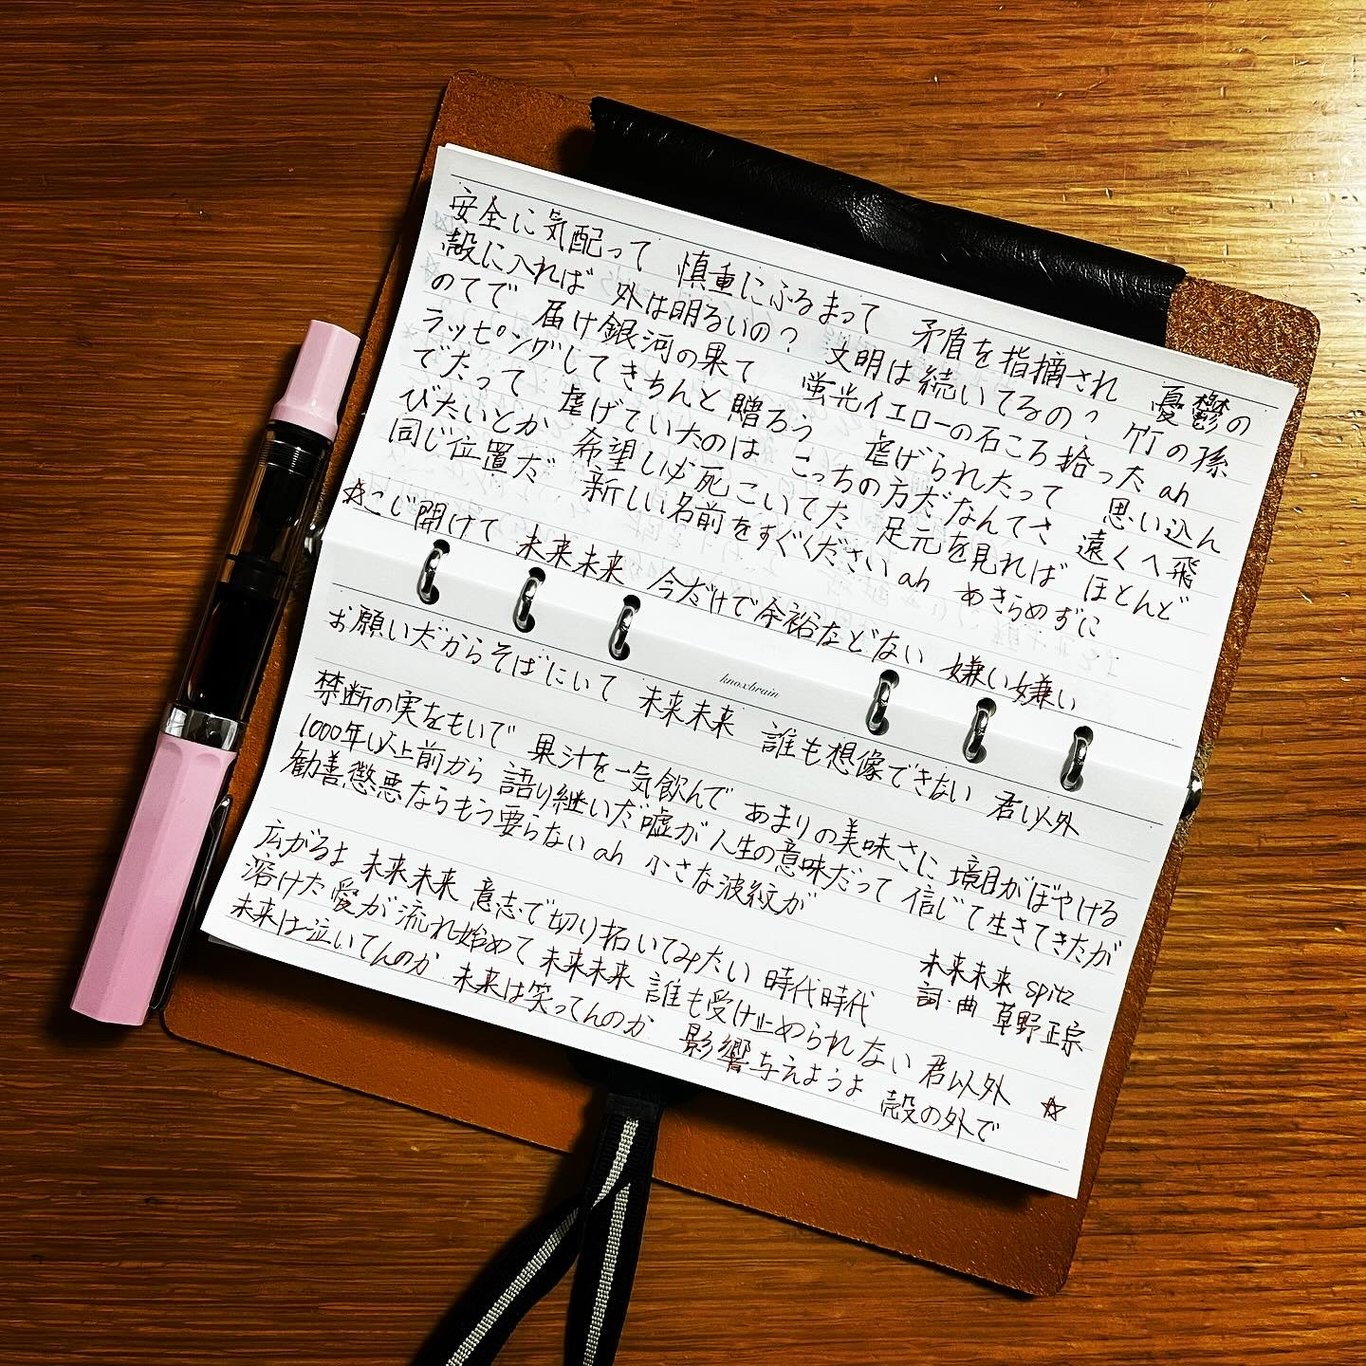 安全に気配って 慎重にふるまって 矛盾を指摘され 憂鬱の
殻に入れば 外は明るいの？ 文明は続いてるの？ 竹の孫
のてで 届け銀河の果て 蛍光イエローの石ころ拾った ah
ラッピングしてきちんと贈ろう 虐げられたって 思い込ん
でたって 虐げていたのは こっちの方だなんてさ 遠くへ飛
びたいとか 希望し必死こいてた 足元を見れば ほとんど
同じ位置だ 新しい名前をすぐください ah あきらめずに
☆こじ開けて 未来未来 今だけで余裕などない 嫌い嫌い
knoxbrain
お願いだからそばにいて 未来未来 誰も想像できない 君以外
禁断の実をもいで 果汁を一気飲んで あまりの美味さに 境目がぼやける
1000年以上前から 語り継いだ嘘が 人生の意味だって 信じて生きてきたが
勧善懲悪ならもう要らない ah 小さな波紋が
広がるよ 未来未来 意志で切り拓いてみたい 時代時代
溶けた愛が流れ始めて 未来未来 誰も受け止められない 君以外 ☆
未来は泣いてんのか 未来は笑ってんのか 影響与えようよ 殻の外で
未来未来 spitz
詞・曲 草野正宗